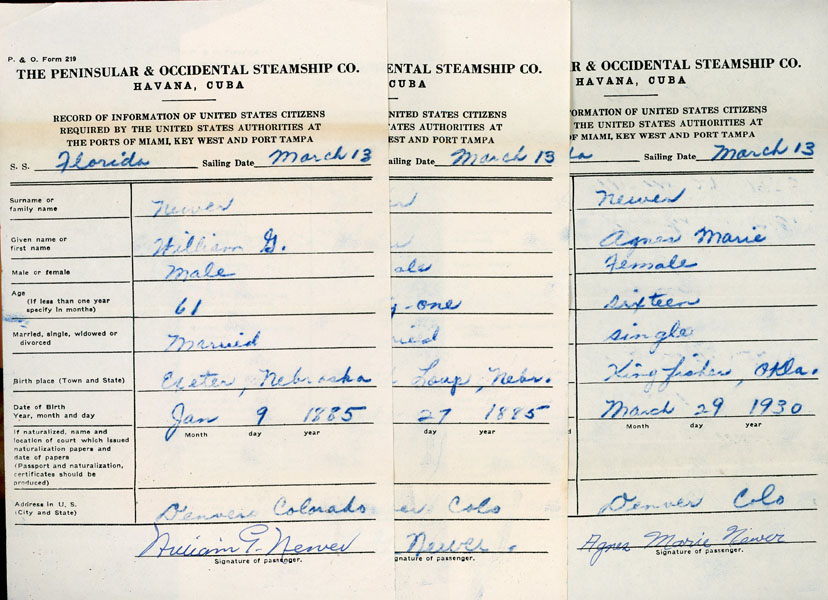 P. & O. Form 219
THE PENINSULAR & OCCIDENTAL STEAMSHIP CO.
HAVANA, CUBA
RECORD OF INFORMATION OF UNITED STATES CITIZENS
REQUIRED BY THE UNITED STATES AUTHORITIES AT
THE PORTS OF MIAMI, KEY WEST AND PORT TAMPA
S. S. Florida Sailing Date March 13
Surname or
family name Newer
Given name or
first name William G.
Male or female Male
Age
(If less than one year
specify in months) 61
Married, single, widowed or
divorced Married
Birth place (Town and State) Exeter, Nebraska
Date of Birth
Year, month and day Jan 9 1885
Month day year
If naturalized, name and
location of court which issued
naturalization papers and
date of papers
(Passport and naturalization,
certificates should be
produced)
Address in U. S.
(City and State) Denver Colorado
William G. Newer
Signature of passenger.
ENTAL STEAMSHIP CO.
CUBA
NITED STATES CITIZENS
TATES AUTHORITIES AT
WEST AND PORT TAMPA
ailing Date March 13
ale
y-one
ried
Loup, Nebr.
27 1895
day year
er Colo
Newer.
gnature of passenger.
R & OCCIDENTAL STEAMSHIP CO.
HAVANA, CUBA
FORMATION OF UNITED STATES CITIZENS
THE UNITED STATES AUTHORITIES AT
OF MIAMI, KEY WEST AND PORT TAMPA
da Sailing Date March 13
Newer
Agnes Marie
Female
sixteen
single
Kingfisher, Okla.
March 29 1930
Month day year
Denver Colo
Agnes Marie Newer
Signature of passenger.